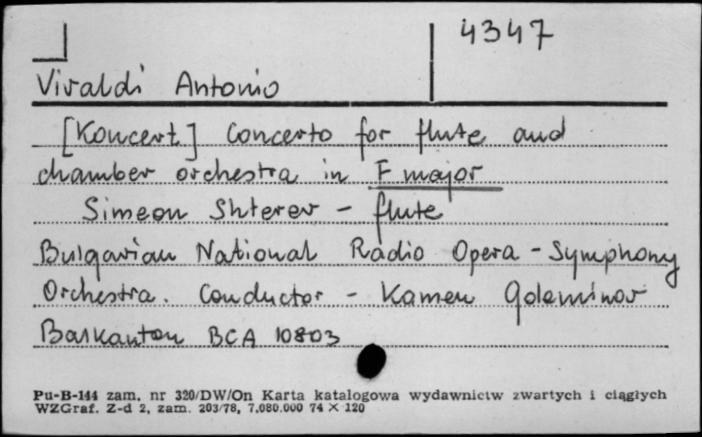 4347
Vivaldi Antonio
[Koncert] Concerto for flute and
chamber orchestra in F major
Simeon Shterev - flute
Bulgarian National Radio Opera - Symphony
Orchestra. Conductor - Kamen Goleminov
Balkanton BCA 10803
Pu-B-144 zam. nr 320/DW/On Karta katalogowa wydawnictw zwartych i ciągłych
WZGraf. Z-d 2, zam. 203/78, 7.080.000 74 × 120